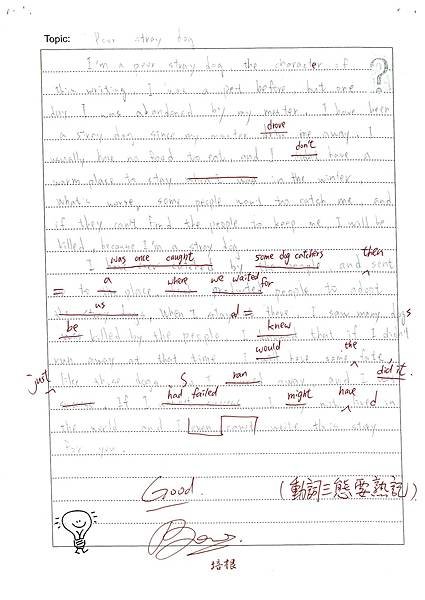 Topic: Poor stray dog
I'm a poor stray dog the character of
this writing. I was a pet before but one
day I was abandoned by my master. I have been
a stray dog since my master drove me away. I
usually have no food to eat, and I don't have a
warm place to stay in the winter.
What's worse, some people want to catch me and
if they can't find the people to keep me I will be
killed, because I'm a stray dog.
I was once caught by some dog catchers and sent then
to a place where we waited for people to adopt
us When I stayed there I saw many dogs
be killed by the people. I knew that if I didn't
run away at that time I would have the same fate
just like those dogs. So I ran away and did it.
If I had failed I might have
the world and I can't write this story
for you.
Good.
(動詞三態要熟記)
培根